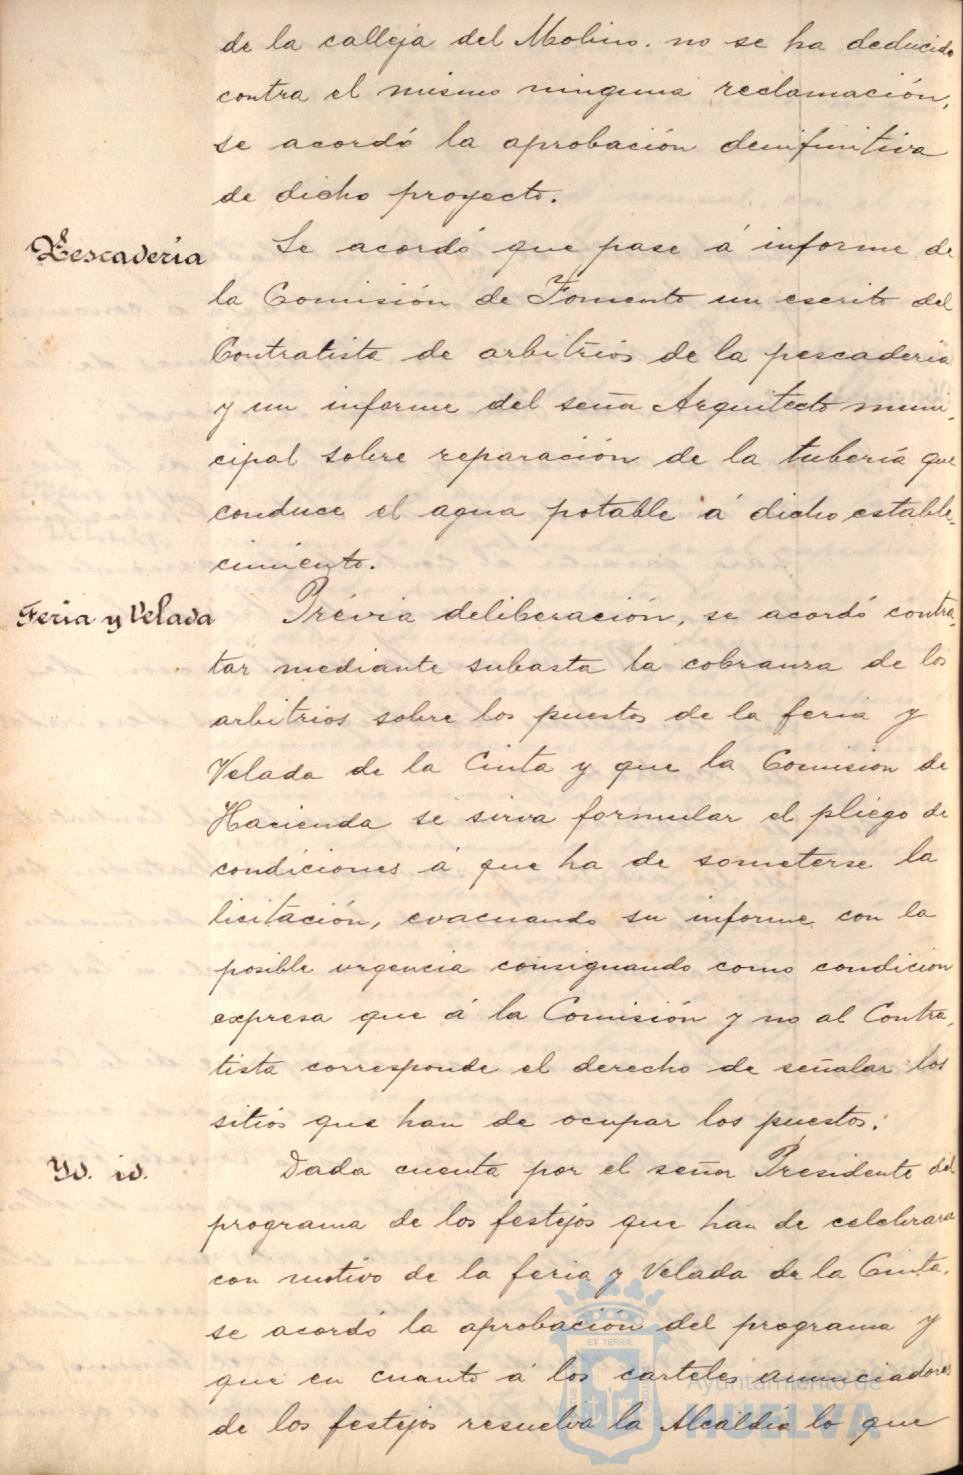 de la calleja del Molino. no se ha deducido
contra el mismo ninguna reclamación,
se acordó la aprobación denifinitiva
de dicho proyecto.
Pescaderia
Se acordó que pase á informe de
la Comisión de Fomento un escrito del
Contratista de arbitrios de la pescaderia
y un informe del señor Arquitecto muni-
cipal sobre reparación de la tubería que
conduce el agua potable á dicho estable-
cimiento.
Feria y Velada
Prévia deliberación, se acordó contra-
tar mediante subasta la cobranza de los
arbitrios sobre los puestos de la feria y
Velada de la Cinta y que la Comision de
Hacienda se sirva formular el pliego de
condiciones á que ha de someterse la
licitación, evacuando su informe con la
posible urgencia consignando como condicion
expresa que á la Comisión y no al Contra-
tista corresponde el derecho de señalar los
sitios que han de ocupar los puestos.
Yd. id.
Dada cuenta por el señor Presidente del
programa de los festejos que han de celebrarse
con motivo de la feria y Velada de la Cinta,
se acordó la aprobación del programa y
que en cuanto á los carteles anunciadores
de los festejos resuelva la Alcaldía lo que
ET TERRÆ
Ayuntamiento de
HUELVA